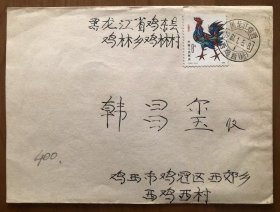 黑龙江省鸡东县
鸡林乡鸡林村
韩昌玺 收
400.
鸡西市鸡冠区西郊乡
西鸡西村